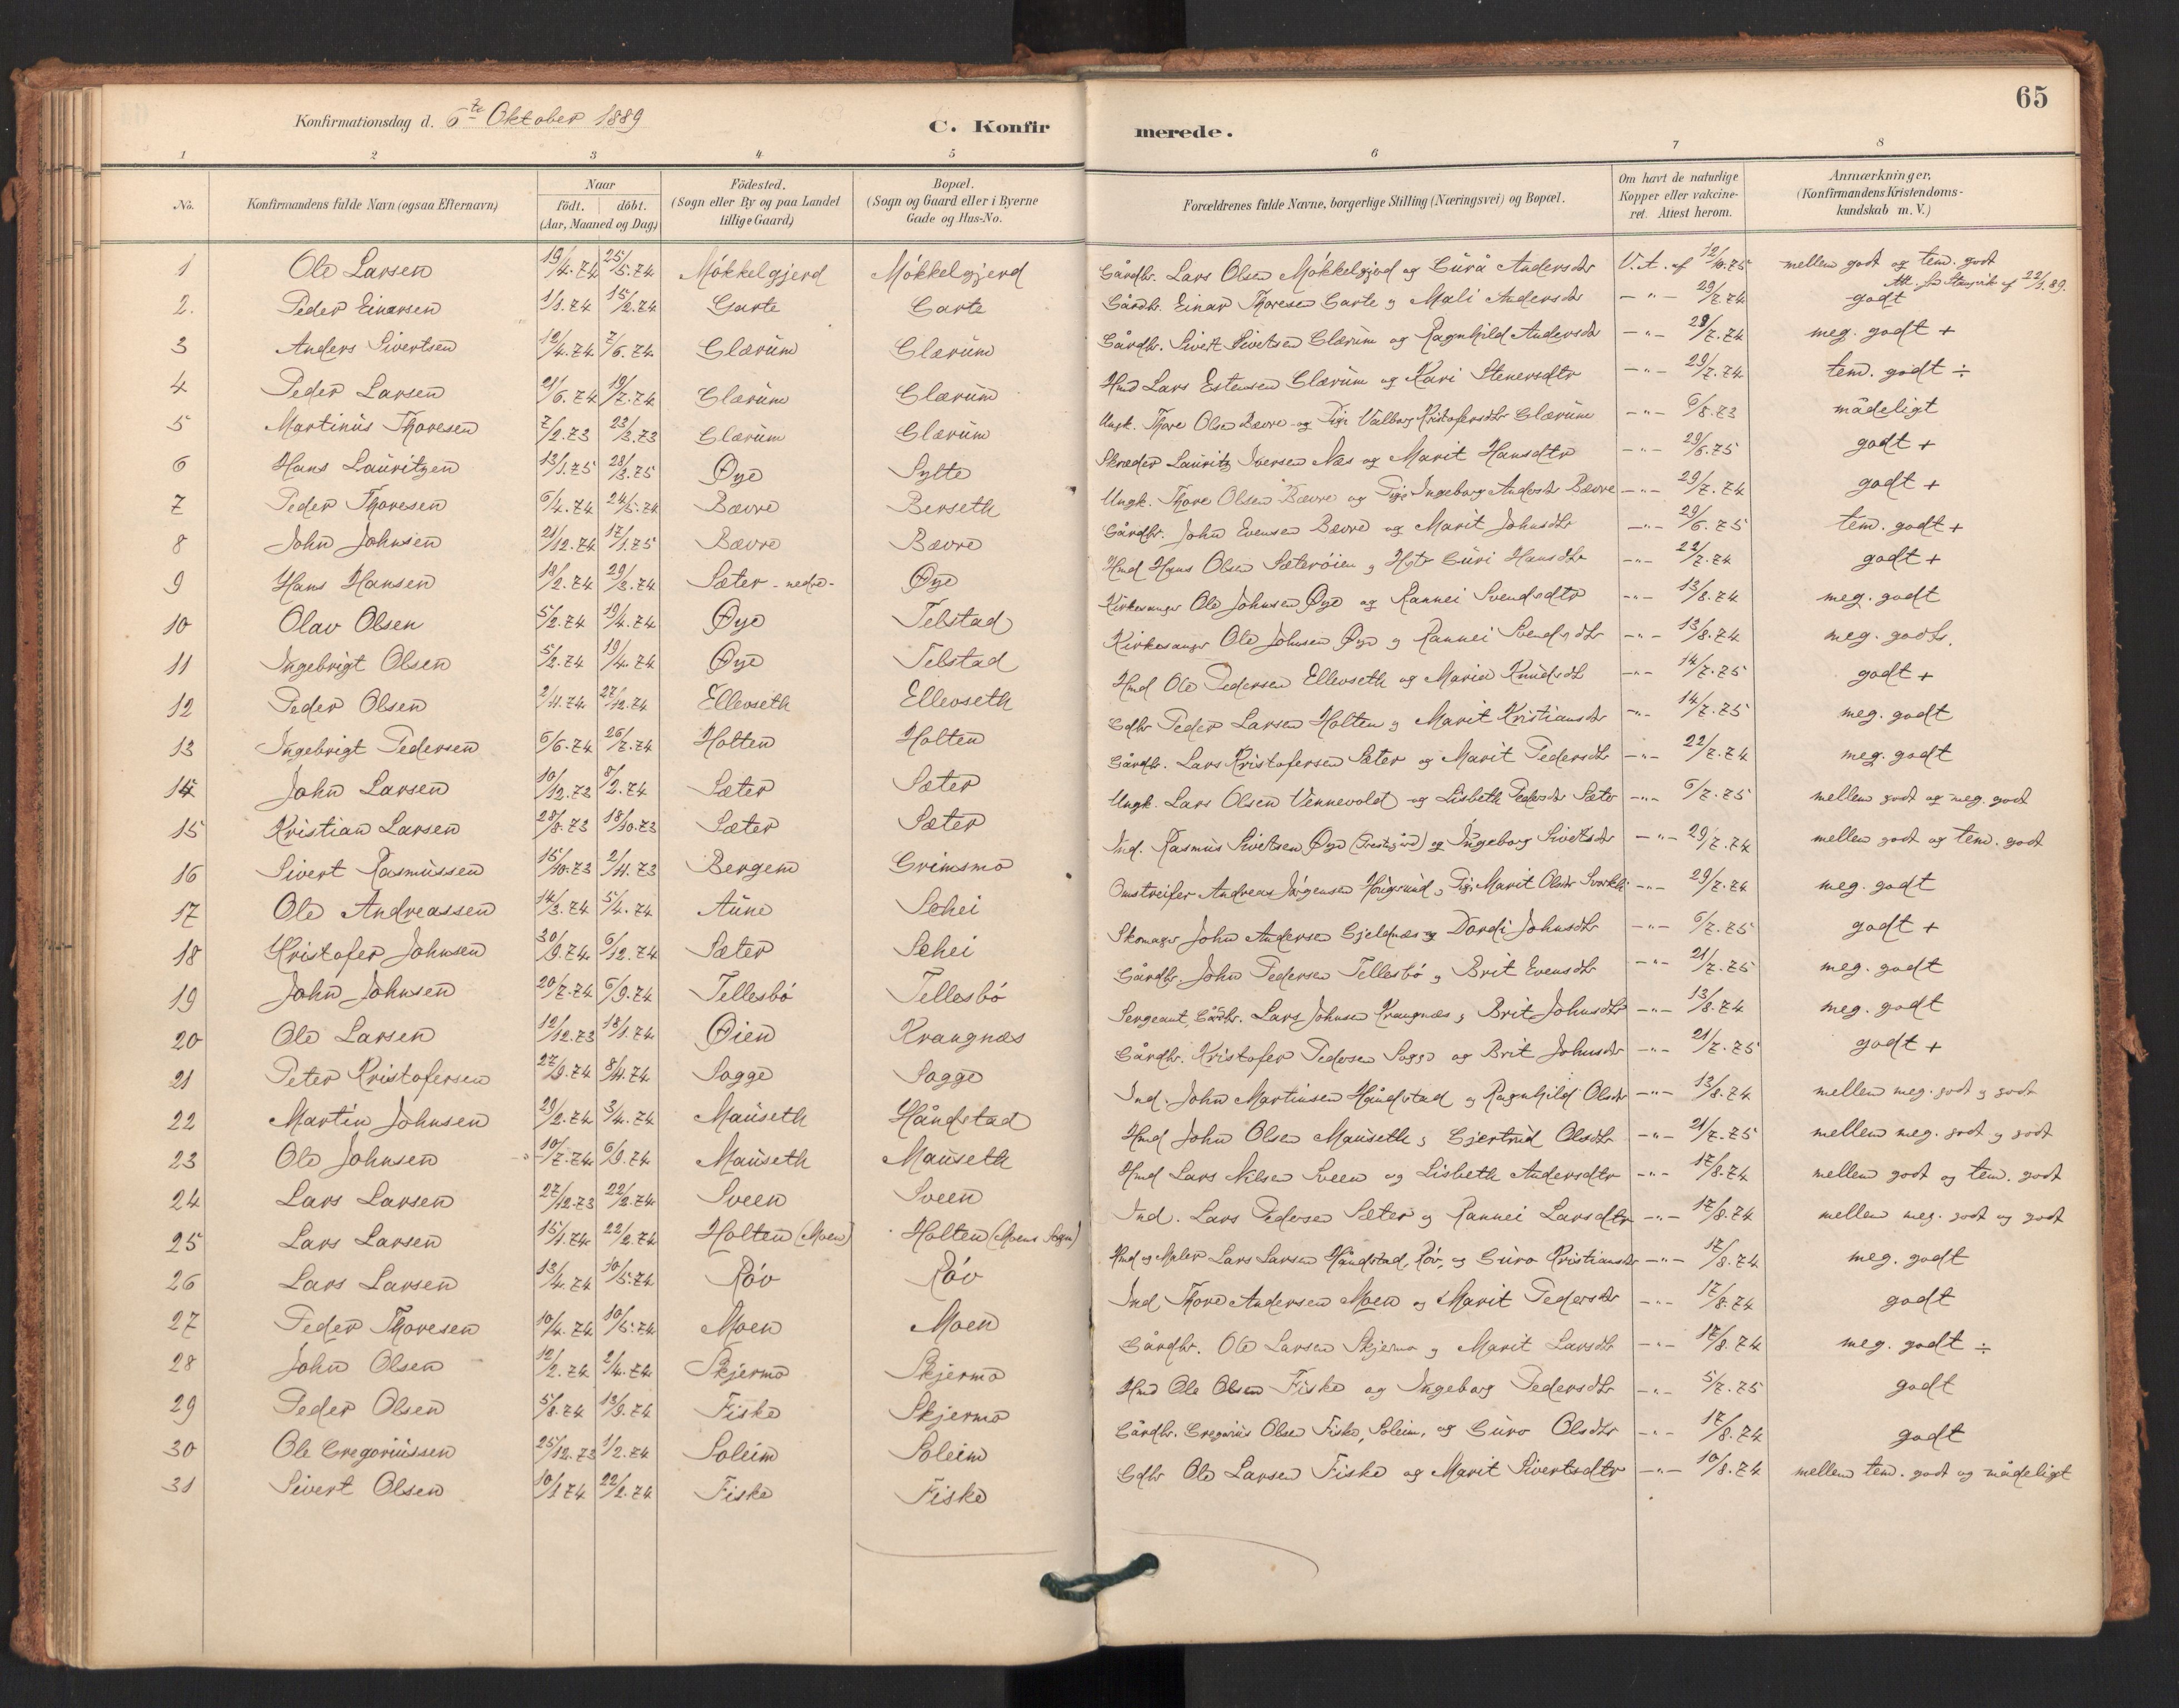 65
Konfirmationsdag d. 6te Oktober 1889
C. Konfirmerede.
1 2 3 4 5 6 7 8
No. | Konfirmandens fulde Navn (ogsaa Efternavn) | Naar födt. | döbt. (Aar, Maaned og Dag) | Födested. (Sogn eller By og paa Landet tillige Gaard) | Bopæl. (Sogn og Gaard eller i Byerne Gade og Hus-No. | Forældrenes fulde Navne, borgerlige Stilling (Næringsvei) og Bopæl. | Om havt de naturlige Kopper eller vakcineret. Attest herom. | Anmærkninger, (Konfirmandens Kristendomskundskab m.V.)
1 Ole Larsen 19/4.74 25/5.74 Mókkelgjerd Mókkelgjerd Gårdbr. Lars Olsen Mókkelgjerd og Gúrå Andersdtr V.A. af 12/9.75 mellem godt og tem. godt
2. Peder Einarsen 1/1.74 15/2.74 Garte Garte Gårdbr. Einar Thoresen Garte og Mali Andersdtr -"- 29/7.74 godt 22/1.89.
3 Anders Sivertsen 12/4.74 7/6.74 Glærúm Glærúm Gårdbr. Sivert Sivertsen Glærúm og Ragnhild Andersdtr -"- 29/7.74 meg. godt +
4 Peder Larsen 21/6.74 19/7.74 Glærúm Glærúm Hmd Lars Estensen Glærúm og Kari Stenersdtr -"- 29/7.74 tem. godt ÷
5 Martinús Thoresen 7/2.73 23/3.73 Glærúm Glærúm Ungk. Thore Olsen Bævre og Pige Valborg Kristofersdtr Glærúm -"- 6/8.73 mådeligt
6 Hans Laúritzen 13/1.75 28/3.75 Øye Sylte Skræder Laúritz Iversen Næs og Marit Hansdtr -"- 29/6.75 godt +
7 Peder Thoresen 6/4.74 24/5.74 Bævre Berseth Ungk. Thore Olsen Bævre og Pige Ingeborg Andersdtr Bævre -"- 29/7.74 godt +
8 John Johnsen 21/12.74 17/1.75 Bævre Bævre Gårdbr. John Evensen Bævre og Marit Johnsdtr -"- 29/6.75 tem. godt +
9 Hans Hansen 18/2.74 29/3.74 Sæter -nedre- Øye Hmd Hans Olsen Sæteróien og Hstr Gúri Hansdtr -"- 22/7.74 godt +
10 Olav Olsen 5/2.74 19/4.74 Øye Telstad Kirkesanger Ole Johnsen Øye og Rannei Svendsdtr -"- 13/8.74 meg. godt
11 Ingebrigt Olsen 5/2.74 19/4.74 Øye Telstad Kirkesanger Ole Johnsen Øye og Rannei Svendsdtr -"- 13/8.74 meg. godt.
12 Peder Olsen 2/11.74 27/12.74 Ellevseth Ellevseth Hmd Ole Pedersen Ellevseth og Maria Knúdsdtr -"- 14/7.75 godt +
13 Ingebrigt Pedersen 6/6.74 26/7.74 Holten Holten Gdbr Peder Larsen Holten og Marit Kristiansdtr -"- 14/7.75 meg. godt
14 John Larsen 10/12.73 8/2.74 Sæter Sæter Gårdbr. Lars Kristofersen Sæter og Marit Pedersdtr -"- 22/7.74 meg. godt
15 Kristian Larsen 28/8.73 18/10.73 Sæter Sæter Ungk. Lars Olsen Vennevold og Lisbeth Pedersdtr Sæter -"- 6/7.75 mellem godt og meg. godt
16 Sivert Rasmússen 15/10.73 2/11.73 Bergem Grimsmo Ind. Rasmús Sivertsen Øye (Prestegård) og Ingeborg Sivertsdtr -"- 29/7.74 mellem godt og tem. godt
17 Ole Andreassen 14/3.74 5/4.74 Aúne Schei Omstreifer Andreas Jórgensen Haúgsund og Pige Marit Olsdtr Svorkli -"- 29/7.74 meg. godt
18 Kristofer Johnsen 30/9.74 6/12.74 Sæter Schei Skomager John Andersen Gjeldnæs og Dordi Johnsdtr -"- 6/7.75 godt +
19 John Johnsen 20/7.74 6/9.74 Tellesbó Tellesbó Gårdbr. John Pedersen Tellesbó og Brit Evensdtr -"- 21/7.75 meg. godt
20 Ole Larsen 12/12.73 18/1.74 Øien Krangnæs Sergeant, Gårdbr. Lars Johnsen Krangnæs og Brit Johnsdtr -"- 13/8.74 meg. godt
21 Peter Kristofersen 27/9.74 8/11.74 Sogge Sogge Gårdbr. Kristofer Pedersen Sogge og Brit Johnsdtr -"- 21/7.75 godt +
22 Martin Johnsen 29/2.74 3/4.74 Maúseth Håndstad Ind. John Martinsen Håndstad og Ragnhild Olsdtr -"- 13/8.74 mellem meg. godt og godt
23 Ole Johnsen 10/7.74 6/9.74 Maúseth Maúseth Hmd John Olsen Maúseth og Gjertrúd Olsdtr -"- 21/7.75 mellem meg. godt og godt
24 Lars Larsen 27/12.73 22/2.74 Sveen Sveen Hmd Lars Nilsen Sveen og Lisbeth Andersdtr -"- 17/8.74 mellem godt og tem. godt
25 Lars Larsen 15/1.74 22/2.74 Holten (Moen) Holten (Moens Sogn) Ind. Lars Pedersen Sæter og Rannei Larsdtr -"- 17/8.74 mellem meg. godt og godt
26 Lars Larsen 13/4.74 10/5.74 Róv Róv Hmd og Maler Lars Larsen Håndstad, Róv, og Gúro Kristiansdtr -"- 17/8.74 meg. godt
27 Peder Thoresen 10/4.74 10/5.74 Moen Moen Ind Thore Andersen Moen og Marit Pedersdtr -"- 17/8.74 godt
28 John Olsen 12/2.74 2/4.74 Skjermo Skjermo Gårdbr. Ole Larsen Skjermo og Marit Larsdtr -"- 17/8.74 meg. godt ÷
29 Peder Olsen 5/8.74 13/9.74 Fiske Skjermo Hmd Ole Olsen Fiske og Ingeborg Pedersdtr -"- 5/7.75 godt
30 Ole Gregoriússen 25/12.73 1/2.74 Soleim Soleim Gårdbr. Gregoriús Olsen Fiske, Soleim, og Gúro Olsdtr -"- 17/8.74 godt
31 Sivert Olsen 10/1.74 22/2.74 Fiske Fiske Gdbr Ole Larsen Fiske og Marit Sivertsdtr -"- 10/8.74 mellem tem. godt og mådeligt